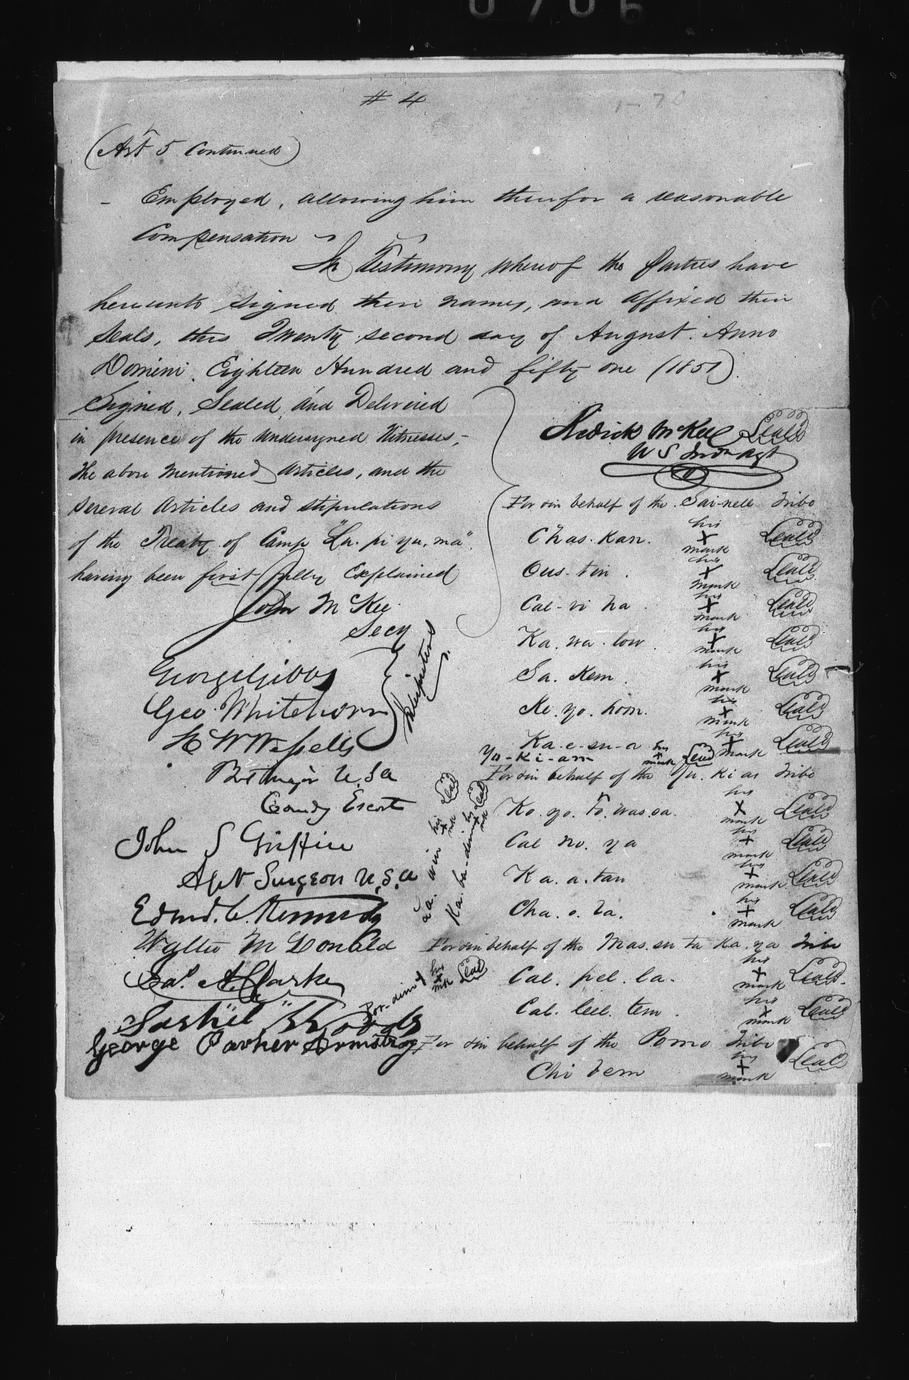 # 4
(Art 5 Continued)
- Employed, allowing him therefor a reasonable
Compensation
In Testimony whereof the Parties have
hereunto signed their names, and affixed their
Seals, this Twenty second day of August. Anno
Domini. Eighteen Hundred and fifty one (1851).
Signed, Sealed, and Delivered
in presence of the undersigned Witnesses,-
the above mentioned Articles, and the
several Articles and stipulations
of the Treaty of Camp "Lu. pi yu. ma".
having been first fully Explained
John McKee
Secy
George Gibbs
Geo. Whitehorn
Interpreters
H W Wessells
Bvt Major U.S.A
Comdy Escort
John S Griffin
Ast Surgeon U.S.A
Edmd. C. Kennedy
Wyllis McDonald
Cas. A. Clarke
George Parker Armstrong
Redick McKee Seal
U S Ind. Agt
For & in behalf of the Sai-nell Tribe
Chas. Kan. his X mark Seal
Ous. tin. his X mark Seal
Cal. vi na his X mark Seal
Ka. wa. low his X mark Seal
Sa. Kem. his X mark Seal
Ke. yo. hom. his X mark Seal
Ka. e- su- a his X mark Seal
Yu-ki-am his X mark Seal
For & in behalf of the Yu. ki as Tribe
Ko. yo. to. was. sa. his X mark Seal
Cal no. ya his X mark Seal
Ka. a. tan his X mark Seal
Cha. o. ta. his X mark Seal
For & in behalf of the Mas. su ta ka. ya Tribe
Cal. pel. la. his X mark Seal
Cal. leel. tem. his X mark Seal
For & in behalf of the Pomo Tribe
Chi bem his X mark Seal